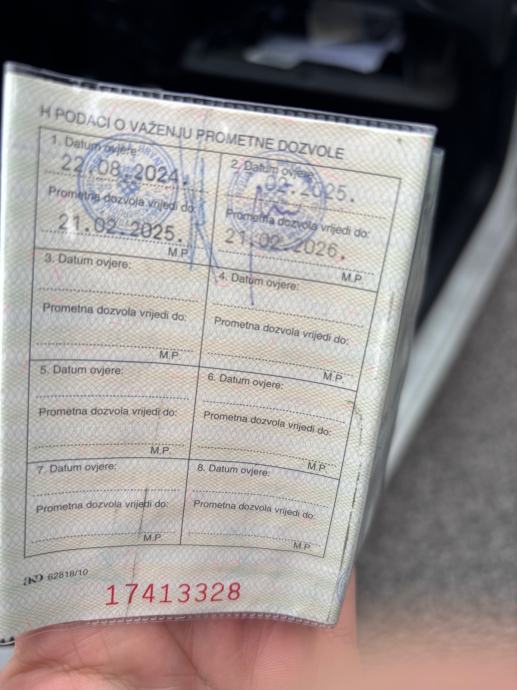 H PODACI O VAŽENJU PROMETNE DOZVOLE
1. Datum ovjere:
22.08.2024.
Prometna dozvola vrijedi do:
21.02.2025.
M.P.
2. Datum ovjere:
02.2025.
Prometna dozvola vrijedi do:
21.02.2026.
M.P.
3. Datum ovjere:
Prometna dozvola vrijedi do:
M.P.
4. Datum ovjere:
Prometna dozvola vrijedi do:
M.P.
5. Datum ovjere:
Prometna dozvola vrijedi do:
M.P.
6. Datum ovjere:
Prometna dozvola vrijedi do:
M.P.
7. Datum ovjere:
Prometna dozvola vrijedi do:
M.P.
8. Datum ovjere:
Prometna dozvola vrijedi do:
M.P.
62818/10
17413328